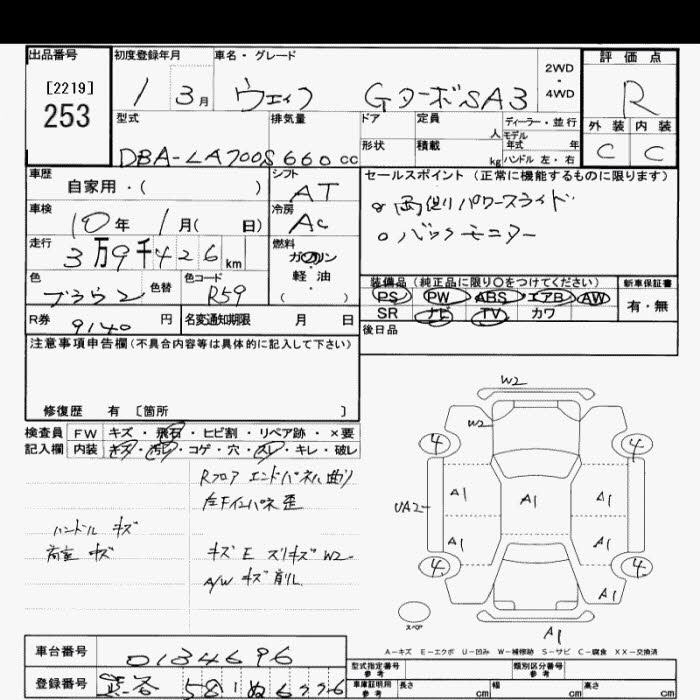 出品番号
[2219]
253
初度登録年月
1 3月
車名・グレード
ウェイク Gターボ SA3
2WD・4WD
評価点
R
外装 内装
C C
型式
DBA-LA700S
排気量
660cc
ドア
形状
定員 人
積載 kg
ディーラー・並行
モデル年式 年
ハンドル 左・右
車歴
自家用・( )
シフト
AT
冷房
AC
車検
10年 1月( 日)
走行
3万9千426km
燃料
ガソリン・軽油・( )
色
ブラウン
色替
色コード
R59
R券
9140円
名変通知期限 月 日
セールスポイント(正常に機能するものに限ります)
○両側パワースライド
○バックモニター
装備品(純正品に限り○をつけてください)
PS PW ABS エアB AW
SR ナビ TV カワ
新車保証書
有・無
後日品
注意事項申告欄(不具合内容等は具体的に記入して下さい)
修復歴 有 [箇所 ]
検査員記入欄
FW キズ・飛石・ヒビ割・リペア跡・×要
内装 キズ・汚レ・コゲ・穴・スレ・キレ・破レ
Rフロア エンドパネル曲り
左下インパネ歪
ハンドル キズ
荷室 キズ
キズ E スリキズ W2
A/W キズ 削れ
W2
W2
4 4
A1 A1 A1
UA2
A1 A1
4 4
A1
スペア
A1
A-キズ E-エクボ U-凹み W-補修跡 S-サビ C-腐食 XX-交換済
車台番号
0134696
登録番号
581 ぬ 6776
型式指定番号 参考
類別区分番号 参考
車庫証明用 参考
長さ cm 幅 cm 高さ cm